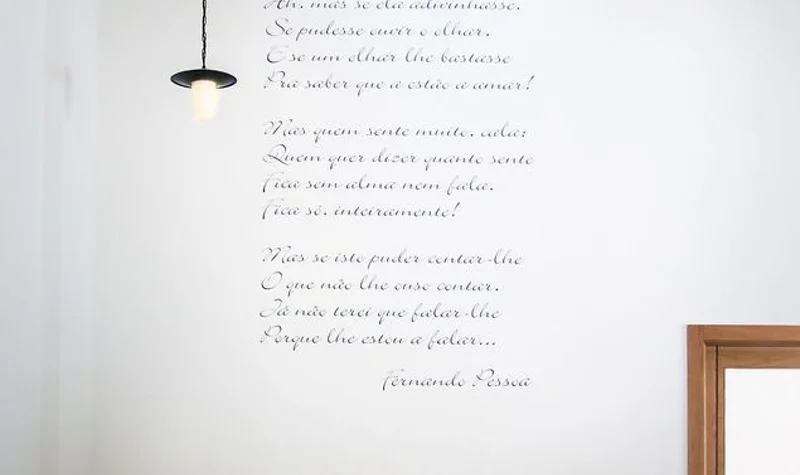 Ah, mas se ela adivinhasse,
Se pudesse ouvir o olhar,
E se um olhar lhe bastasse
Pra saber que a estão a amar!
Mas quem sente muito, cala;
Quem quer dizer quanto sente
Fica sem alma nem fala,
Fica só, inteiramente!
Mas se isto puder contar-lhe
O que não lhe ouso contar,
Já não terei que falar-lhe
Porque lhe estou a falar...
Fernando Pessoa